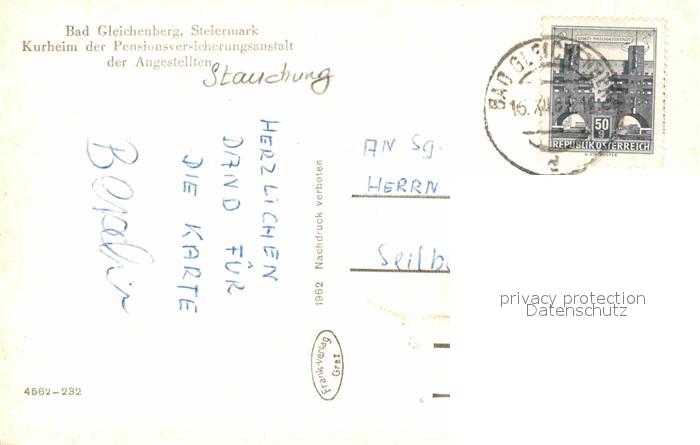 Bad Gleichenberg, Steiermark
Kurheim der Pensionsversicherungsanstalt
der Angestellten
Stauchung
HERZLICHEN
DAND FÜR
DIE KARTE
1962 Nachdruck verboten
Frank-Verlag
Graz
4562-232
AN Sg.
HERRN
BAD GLEICHENBERG
16.
50
g
REPUBLIK ÖSTERREICH
privacy protection
Datenschutz